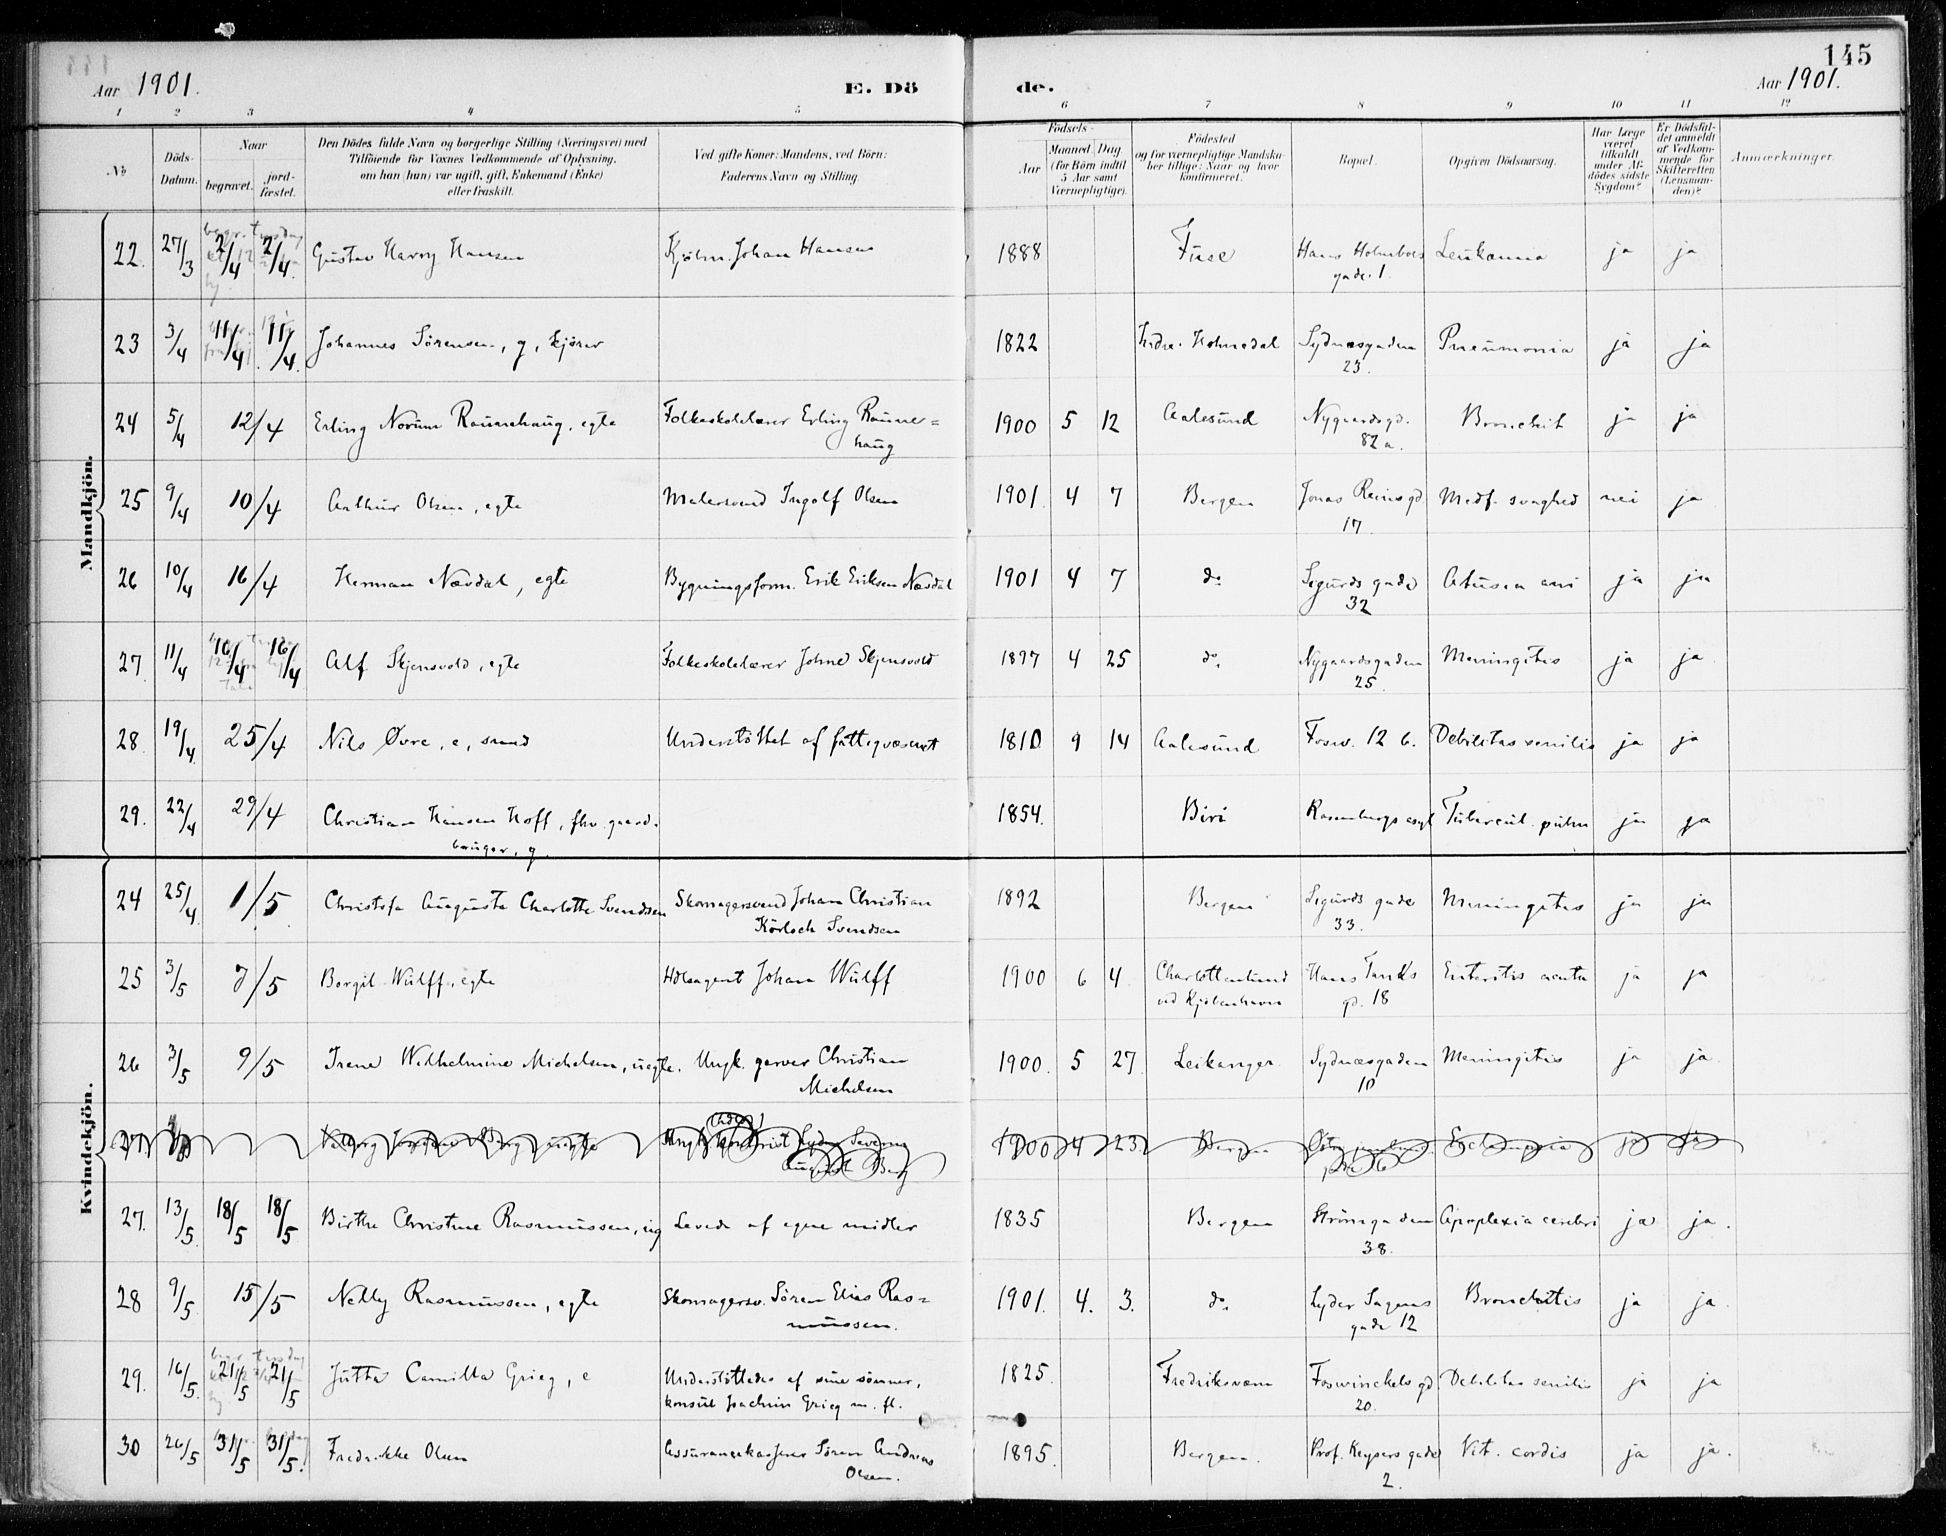 145
Aar 1901.
E. Dö
de.
Aar 1901.
1 2 3 4 5 6 7 8 9 10 11 12
No
Döds-Datum.
Naar
begravet.
jord-fæstet.
Den Dödes fulde Navn og borgerlige Stilling (Næringsvei) med
Tilföiende for Voxnes Vedkommende af Oplysning,
om han (hun) var ugift, gift, Enkemand (Enke)
eller fraskilt.
Ved gifte Koner: Mandens, ved Börn:
Faderens Navn og Stilling.
Födsels-
Aar
Maaned Dag
(for Börn indtil
5 Aar samt
Værnepligtige).
Födested
og for værnepligtige Mandska-
ber tillige: Naar og hvor
konfirmeret.
Bopæl.
Opgiven Dödsaarsag.
Har Læge
været
tilkaldt
under Af-
dödes sidste
Sygdom?
Er Dödsfal-
det anmeldt
af Vedkom-
mende for
Skifteretten
(Lensman-
den)?
Anmærkninger.
Mandkjön.
22. 27/3 2/4 2/4. Gustav Harry Hansen Kjölm. Johan Hansen 1888 Fuse Hans Holmboes gade 1. ja ja
23 3/4 11/4 11/4. Johannes Sörensen, g, kjörer 1822 Indre Holmedal Sydnæsgaden 23. Pneumonia ja ja
24 5/4 12/4 Erling Norum Raunehaug, egte Folkeskolelærer Erling Raune=haug 1900 5 12 Aalesund Nygaardsgd. 82 a. Bronchit ja ja
25 9/4 10/4 Arthur Olsen, egte Malersvend Ingolf Olsen 1901. 4 7 Bergen Jonas Reinsgd. 17. Medf. svaghed nei ja
26 10/4 16/4 Herman Nævdal, egte Bygningsform. Erik Eriksen Nævdal 1901 4 7 do Sigurds gade 32 ani ja ja
27. 11/4 16/4 16/4 Alf Skjensvold, egte Folkeskolelærer Johne Skjensvold 1897 4 25 do. Nygaardsgaden 25. Meningitis ja ja
28. 19/4. 25/4 Nils Øvre, e, smed Understöttet af fattigvæsenet 1810 9 14 Aalesund Fosw. 12 b. Debilitas senilis ja ja
29. 22/4 29/4 Christian Hansen Hoff, fhv. gaard-bruger, g. 1854. Biri Rosenbergs asyl Tubercul. pulm ja ja
Kvindekjön.
24 25/4. 1/5. Christofa Augusta Charlotte Svendsen Skomagersvend Johan Christian Körloch Svendsen 1892 Bergen Sigurds gade 33. Meningitis ja ja
25 3/5 7/5 Borgil Wulff, egte Hdlsagent Johan Wulff 1900 6 4. Charlottenlund ved Kjöbenhavn Hans Tanks gd. 18 Enteritis acuta ja ja
26 3/5 9/5 Irene Wilhelmine Michelsen, uegte. Ungk. garver Christian Michelsen 1900. 5 27 Leikanger. Sydnæsgaden 10 Meningitis ja ja.
27 Berg uegte Ungk. Lyder Severin August Berg 1900 4 23. Bergen Eclampsia ja ja
27. 13/5. 18/5 18/5 Birthe Christine Rasmussen, ug Levede af egne midler 1835 Bergen Strömgaden 38. Apoplexia cerebri ja ja.
28 9/5. 15/5 Nelly Rasmussen, egte Skomagersv. Sören Elias Ras=mussen. 1901. 4. 3. do. Lyder Sagens gade 12 Bronchitis ja ja.
29. 16/5. 21/5 21/5 Jutta Camilla Grieg, e Understöttedes af sine sönner, konsul Joachim Grieg m. fl. 1825. Fredriksværn Foswinckels gd. 20. Debilitas senilis ja ja
30 26/5 31/5 31/5. Fredrikke Olsen Assurancekasserer Sören Andreas Olsen. 1895. Bergen. Prof. Keysers gade 2. Vit. cordis ja ja.